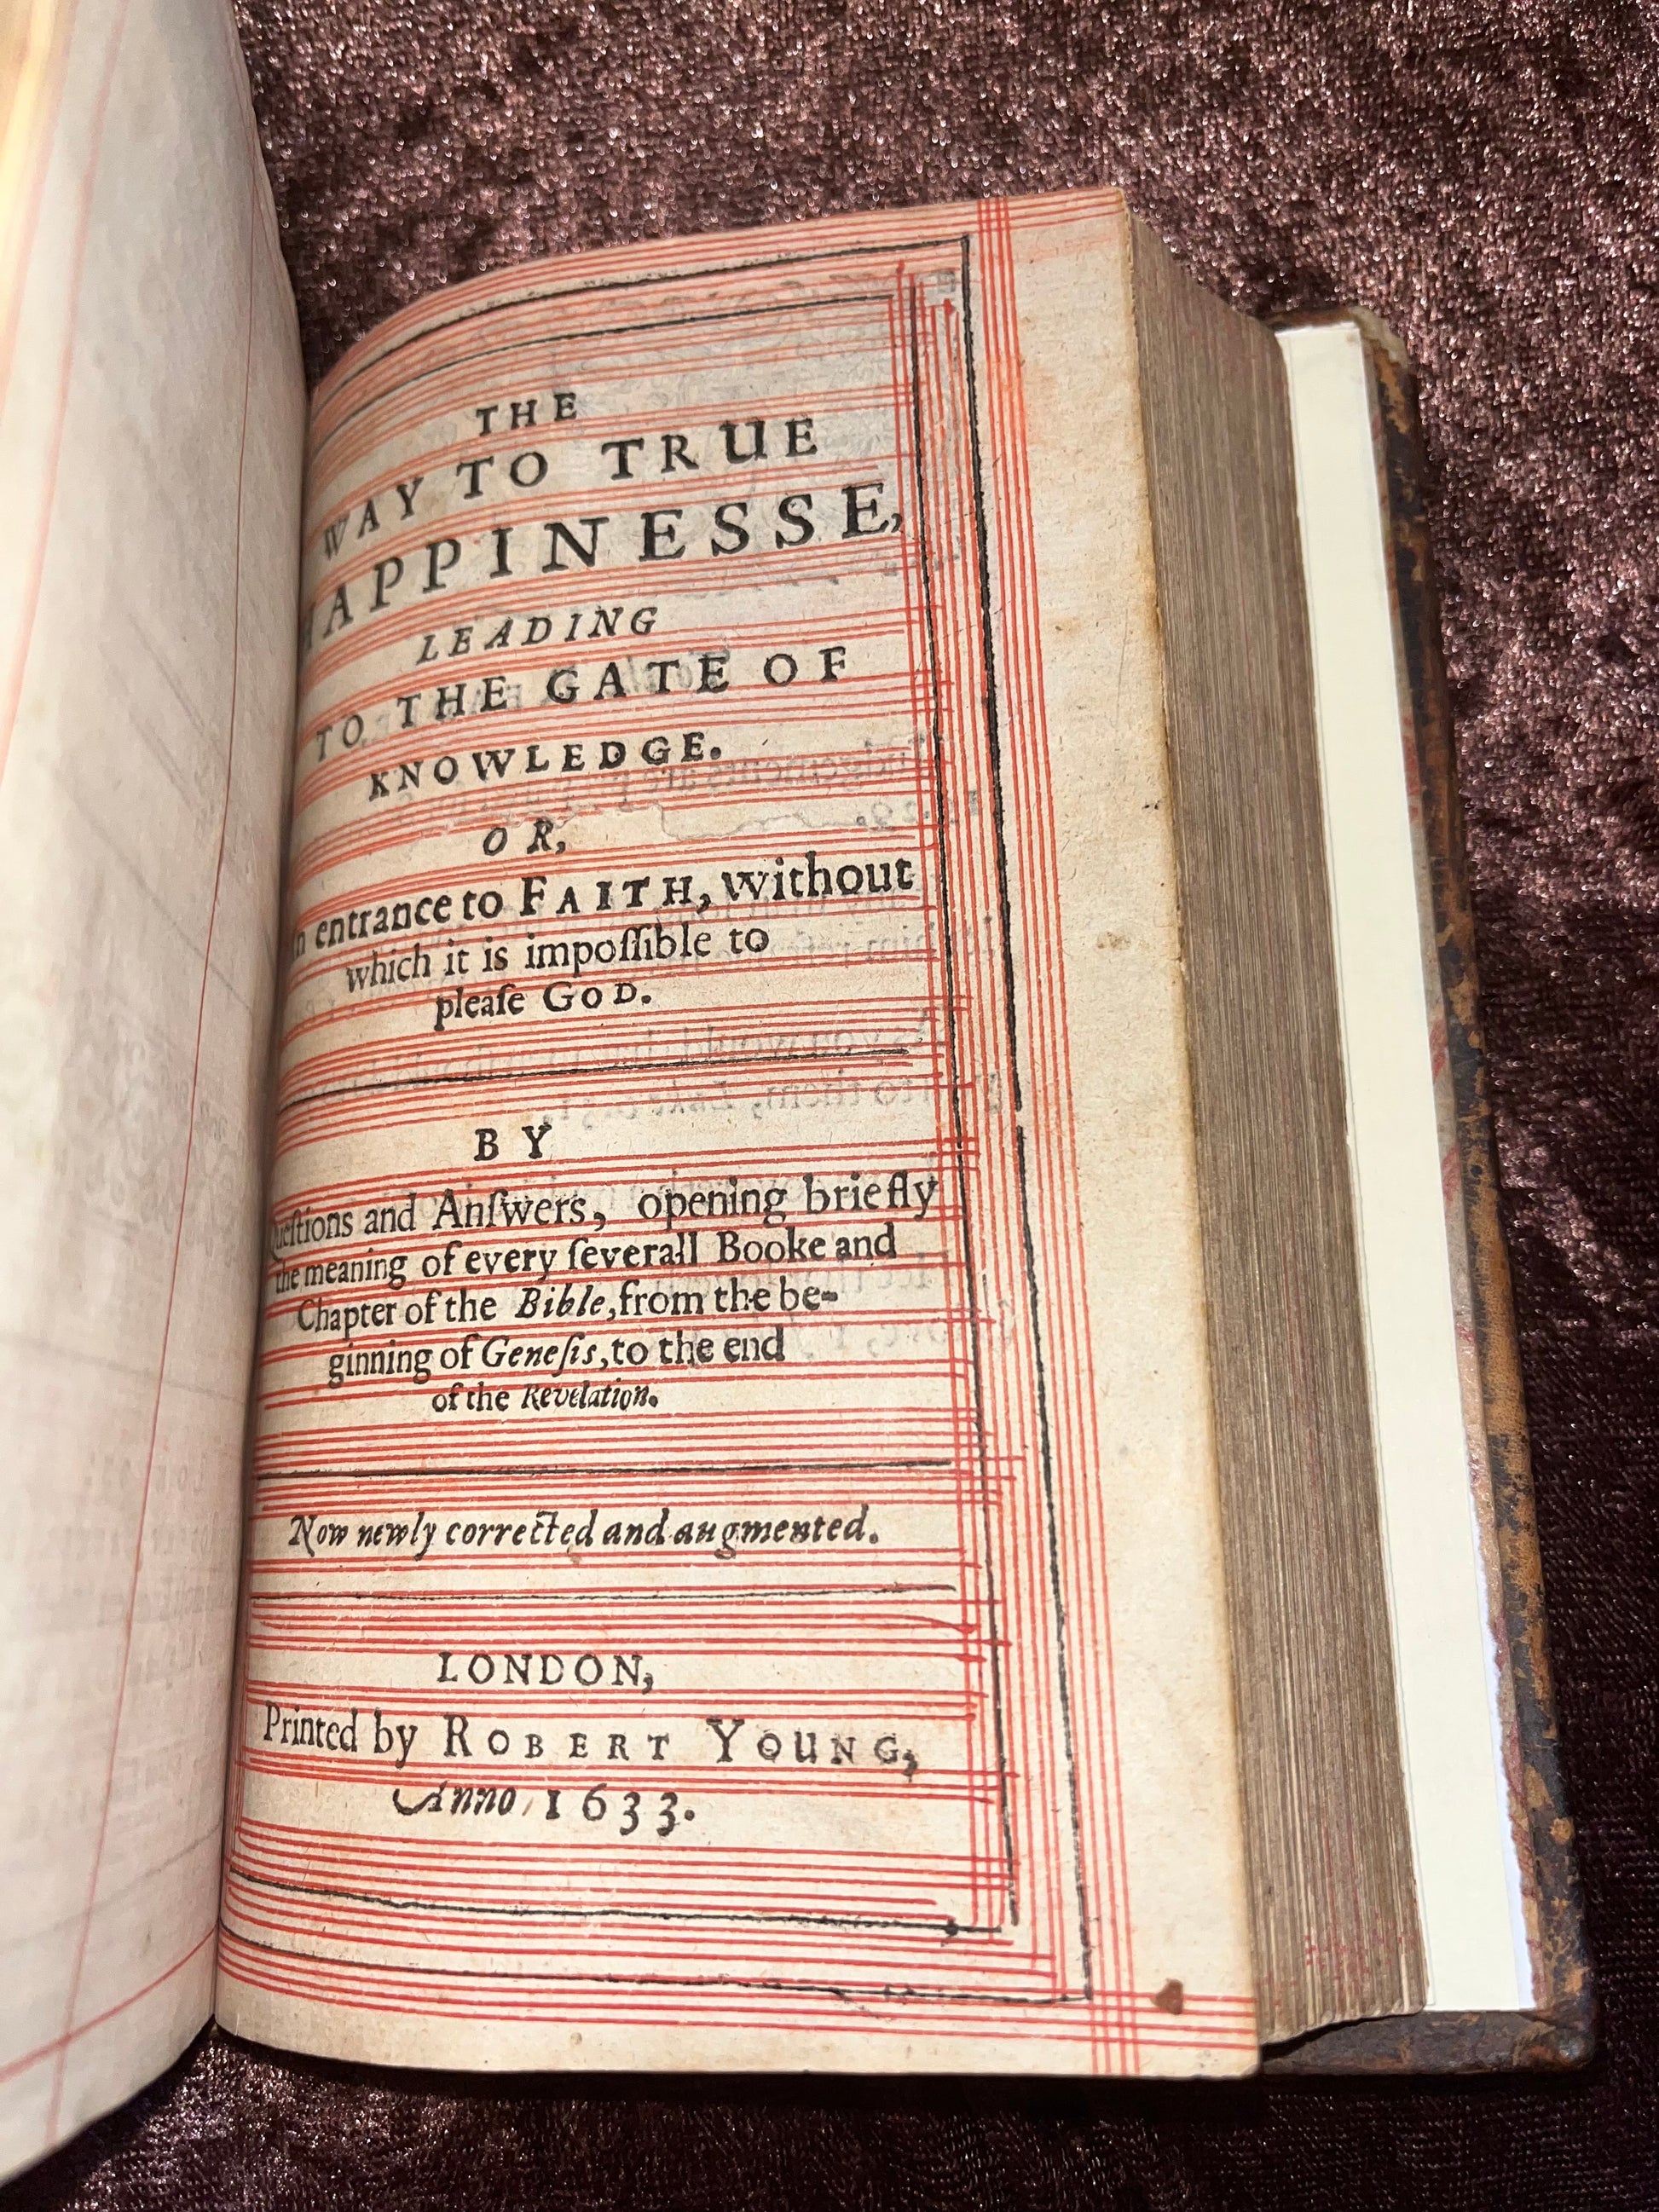 THE
WAY TO TRUE
HAPPINESSE,
LEADING
TO THE GATE OF
KNOWLEDGE.
OR,
entrance to FAITH, without
which it is impoſſible to
pleaſe GOD.
BY
Queſtions and Anſwers, opening briefly
the meaning of every ſeverall Booke and
Chapter of the Bible, from the be-
ginning of Geneſis, to the end
of the Revelation.
Now newly corrected and augmented.
LONDON,
Printed by ROBERT YOUNG,
Anno 1633.